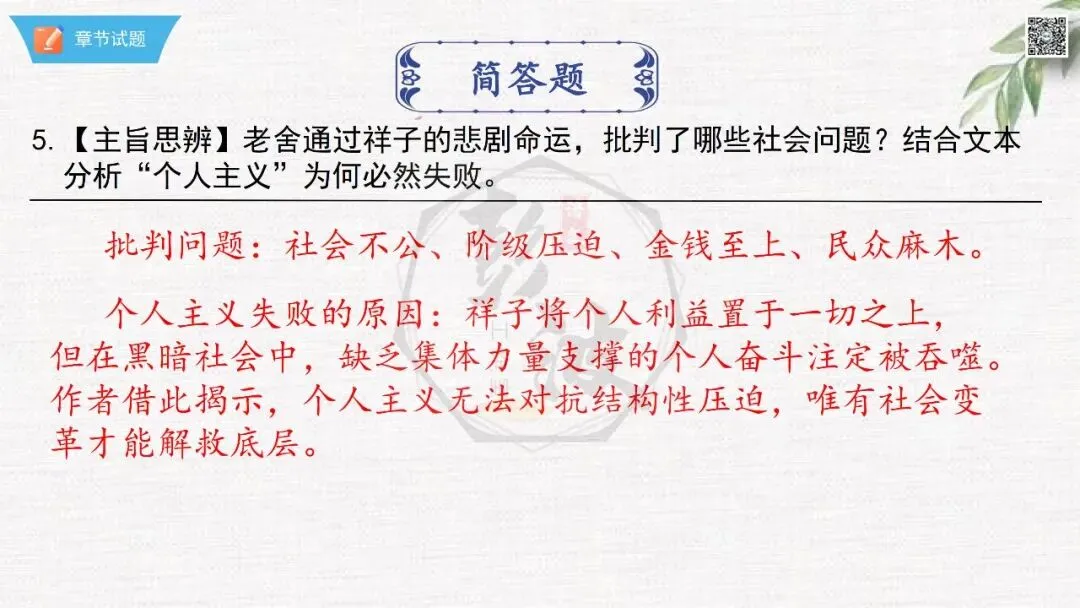 章节试题
简答题
5.【主旨思辨】老舍通过祥子的悲剧命运，批判了哪些社会问题？结合文本
分析“个人主义”为何必然失败。
批判问题：社会不公、阶级压迫、金钱至上、民众麻木。
个人主义失败的原因：祥子将个人利益置于一切之上，
但在黑暗社会中，缺乏集体力量支撑的个人奋斗注定被吞噬。
作者借此揭示，个人主义无法对抗结构性压迫，唯有社会变
革才能解救底层。